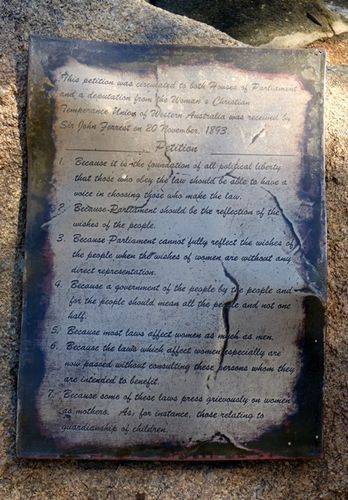 This petition was circulated to both Houses of Parliament
and a deputation from the Woman's Christian
Temperance Union of Western Australia was received by
Sir John Forrest on 20 November, 1893.
Petition
1. Because it is the foundation of all political liberty
that those who obey the law should be able to have a
voice in choosing those who make the law.
2. Because Parliament should be the reflection of the
wishes of the people.
3. Because Parliament cannot fully reflect the wishes of
the people when the wishes of women are without any
direct representation.
4. Because a government of the people by the people and
for the people should mean all the people and not one
half.
5. Because most laws affect women as much as men.
6. Because the laws which affect women especially are
now passed without consulting these persons whom they
are intended to benefit.
7. Because some of these laws press grievously on women
as mothers. As, for instance, those relating to
guardianship of children.